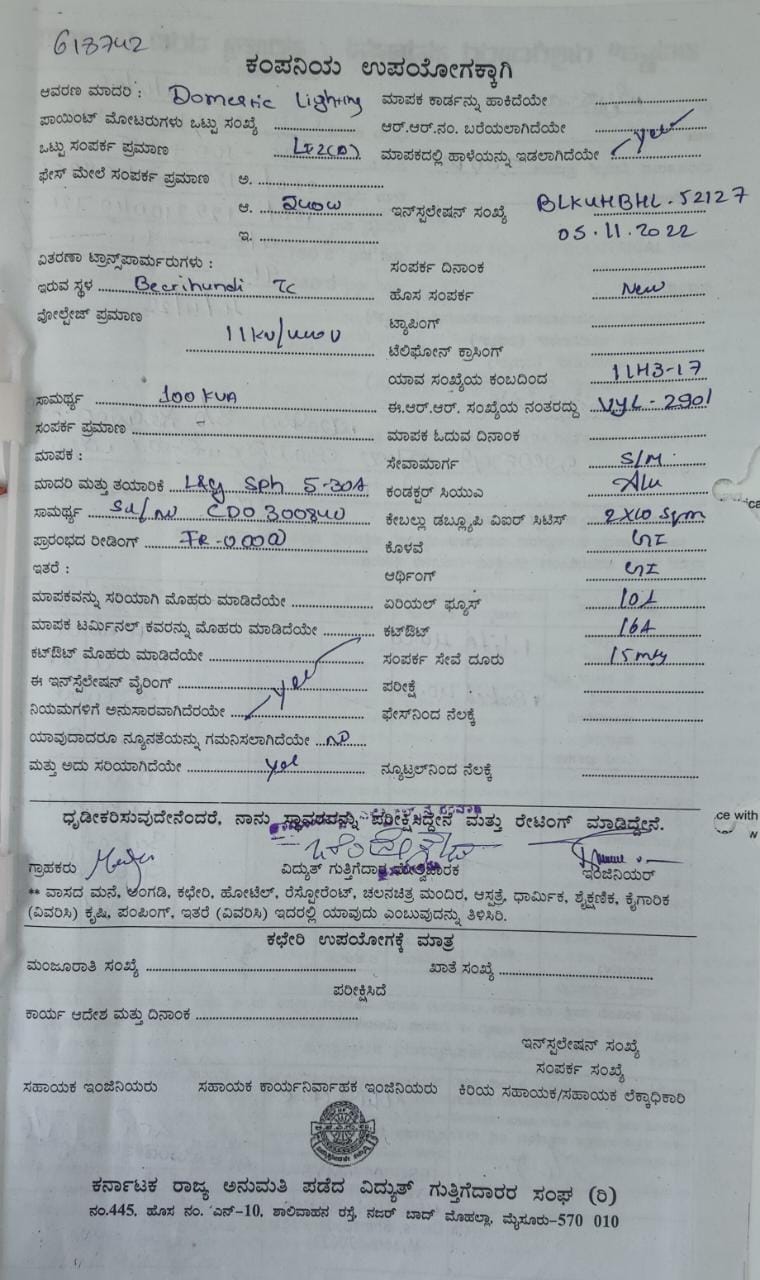 618742
ಕಂಪನಿಯ ಉಪಯೋಗಕ್ಕಾಗಿ
ಆವರಣ ಮಾದರಿ : Domestic Lighting ಮಾಪಕ ಕಾರ್ಡನ್ನು ಹಾಕಿದೆಯೇ
ಪಾಯಿಂಟ್ ಮೋಟರುಗಳು ಒಟ್ಟು ಸಂಖ್ಯೆ ಆರ್.ಆರ್.ನಂ. ಬರೆಯಲಾಗಿದೆಯೇ
ಒಟ್ಟು ಸಂಪರ್ಕ ಪ್ರಮಾಣ ಮಾಪಕದಲ್ಲಿ ಹಾಳೆಯನ್ನು ಇಡಲಾಗಿದೆಯೇ yes
ಫೇಸ್ ಮೇಲೆ ಸಂಪರ್ಕ ಪ್ರಮಾಣ ಅ.
ಆ. ಇನ್‌ಸ್ಟಲೇಷನ್ ಸಂಖ್ಯೆ BLKUHBHL-52127
ಇ. 05.11.2022
ವಿತರಣಾ ಟ್ರಾನ್ಸ್‌ಪಾರ್ಮರುಗಳು : ಸಂಪರ್ಕ ದಿನಾಂಕ
ಇರುವ ಸ್ಥಳ Beerihundi Tc ಹೊಸ ಸಂಪರ್ಕ New
ವೋಲ್ಟೇಜ್ ಪ್ರಮಾಣ 11KV/ ಟ್ಯಾಪಿಂಗ್
ಟೆಲಿಫೋನ್ ಕ್ರಾಸಿಂಗ್
ಯಾವ ಸಂಖ್ಯೆಯ ಕಂಬದಿಂದ 11H3-17
ಸಾಮರ್ಥ್ಯ 100 KVA ಈ.ಆರ್.ಆರ್. ಸಂಖ್ಯೆಯ ನಂತರದ್ದು VYL-2901
ಸಂಪರ್ಕ ಪ್ರಮಾಣ - ಮಾಪಕ ಓದುವ ದಿನಾಂಕ
ಮಾಪಕ : ಸೇವಾಮಾರ್ಗ S/M.
ಮಾದರಿ ಮತ್ತು ತಯಾರಿಕೆ Sph 5-30A ಕಂಡಕ್ಟರ್ ಸಿಯುಎ Alu
ಸಾಮರ್ಥ್ಯ CDO 300840 ಕೇಬಲ್ಲು ಡಬ್ಲ್ಯೂಪಿ ವಿಐರ್ ಸಿಟಿಸ್ 2x10 Sqm
ಪ್ರಾರಂಭದ ರೀಡಿಂಗ್ ಕೊಳವೆ GI
ಇತರೆ : ಆರ್ಥಿಂಗ್ GI
ಮಾಪಕವನ್ನು ಸರಿಯಾಗಿ ಮೊಹರು ಮಾಡಿದೆಯೇ ಏರಿಯಲ್ ಫ್ಯೂಸ್ 10A
ಮಾಪಕ ಟರ್ಮಿನಲ್ ಕವರನ್ನು ಮೊಹರು ಮಾಡಿದೆಯೇ ಕಟ್‌ಔಟ್ 16A
ಕಟ್‌ಔಟ್ ಮೊಹರು ಮಾಡಿದೆಯೇ ಸಂಪರ್ಕ ಸೇವೆ ದೂರು
ಈ ಇನ್‌ಸ್ಟಲೇಷನ್ ವೈರಿಂಗ್ yes ಪರೀಕ್ಷೆ
ನಿಯಮಗಳಿಗೆ ಅನುಸಾರವಾಗಿದೆರಯೇ ಫೇಸ್‌ನಿಂದ ನೆಲಕ್ಕೆ
ಯಾವುದಾದರೂ ನ್ಯೂನತೆಯನ್ನು ಗಮನಿಸಲಾಗಿದೆಯೇ NO
ಮತ್ತು ಅದು ಸರಿಯಾಗಿದೆಯೇ yes ನ್ಯೂಟ್ರಲ್‌ನಿಂದ ನೆಲಕ್ಕೆ
ಧೃಡೀಕರಿಸುವುದೇನೆಂದರೆ, ನಾನು ಸ್ಥಾವರವನ್ನು ಪರೀಕ್ಷಿಸಿದ್ದೇನೆ ಮತ್ತು ರೇಟಿಂಗ್ ಮಾಡಿದ್ದೇನೆ.
ಗ್ರಾಹಕರು ವಿದ್ಯುತ್ ಗುತ್ತಿಗೆದಾರ ಇಂಜಿನಿಯರ್
** ವಾಸದ ಮನೆ, ಅಂಗಡಿ, ಕಛೇರಿ, ಹೋಟೆಲ್, ರೆಸ್ಟೋರೆಂಟ್, ಚಲನಚಿತ್ರ ಮಂದಿರ, ಆಸ್ಪತ್ರೆ, ಧಾರ್ಮಿಕ, ಶೈಕ್ಷಣಿಕ, ಕೈಗಾರಿಕ
(ವಿವರಿಸಿ) ಕೃಷಿ, ಪಂಪಿಂಗ್, ಇತರೆ (ವಿವರಿಸಿ) ಇದರಲ್ಲಿ ಯಾವುದು ಎಂಬುವುದನ್ನು ತಿಳಿಸಿರಿ.
ಕಛೇರಿ ಉಪಯೋಗಕ್ಕೆ ಮಾತ್ರ
ಮಂಜೂರಾತಿ ಸಂಖ್ಯೆ ಖಾತೆ ಸಂಖ್ಯೆ
ಪರೀಕ್ಷಿಸಿದೆ
ಕಾರ್ಯ ಆದೇಶ ಮತ್ತು ದಿನಾಂಕ
ಇನ್‌ಸ್ಟಲೇಷನ್ ಸಂಖ್ಯೆ
ಸಂಪರ್ಕ ಸಂಖ್ಯೆ
ಸಹಾಯಕ ಇಂಜಿನಿಯರು ಸಹಾಯಕ ಕಾರ್ಯನಿರ್ವಾಹಕ ಇಂಜಿನಿಯರು ಕಿರಿಯ ಸಹಾಯಕ/ಸಹಾಯಕ ಲೆಕ್ಕಾಧಿಕಾರಿ
ಕರ್ನಾಟಕ ರಾಜ್ಯ ಅನುಮತಿ ಪಡೆದ ವಿದ್ಯುತ್ ಗುತ್ತಿಗೆದಾರರ ಸಂಘ (ರಿ)
ನಂ.445, ಹೊಸ ನಂ. ಎನ್-10, ಶಾಲಿವಾಹನ ರಸ್ತೆ, ನಜರ್ ಬಾದ್ ಮೊಹಲ್ಲಾ, ಮೈಸೂರು-570 010